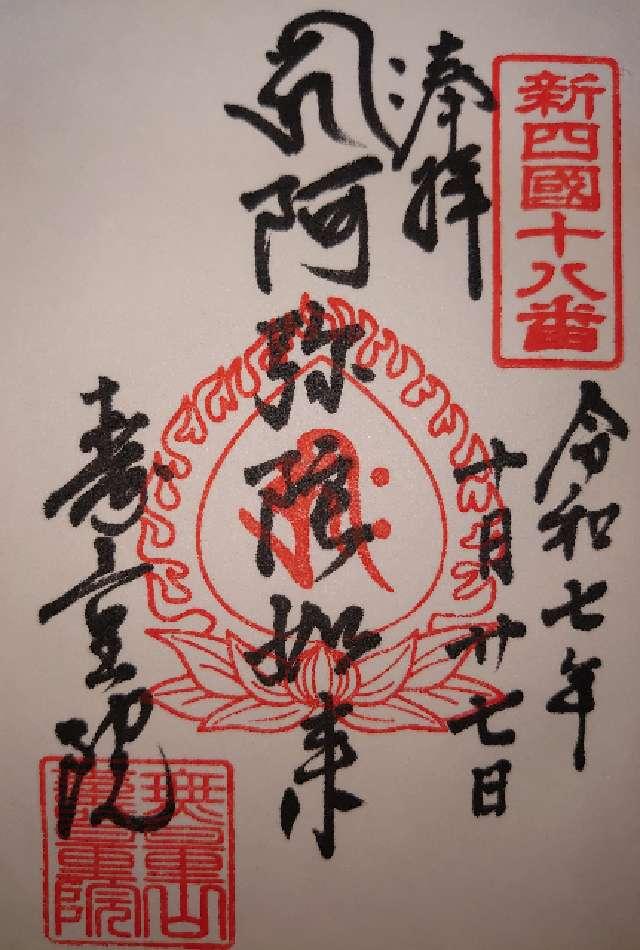 新四國十八番
奉拝
令和七年
十月廿七日
阿弥陀如来
寿量院
無量山
壽量院